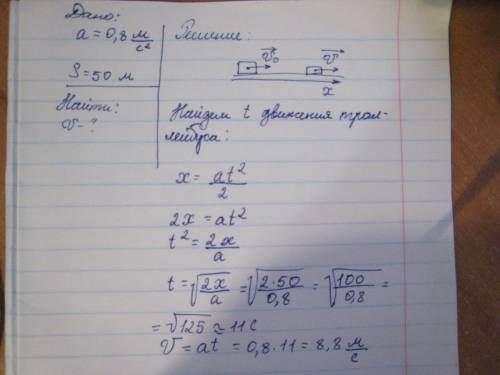 Дано:
a = 0,8 м/с²
S = 50 м
Найти:
v - ?
Решение:
v₀ v
x
Найдем t движения трол-
лейбуса:
x = at²/2
2x = at²
t² = 2x/a
t = √(2x/a) = √(2·50/0,8) = √(100/0,8) =
= √125 ≈ 11 с
V = at = 0,8 · 11 = 8,8 м/с